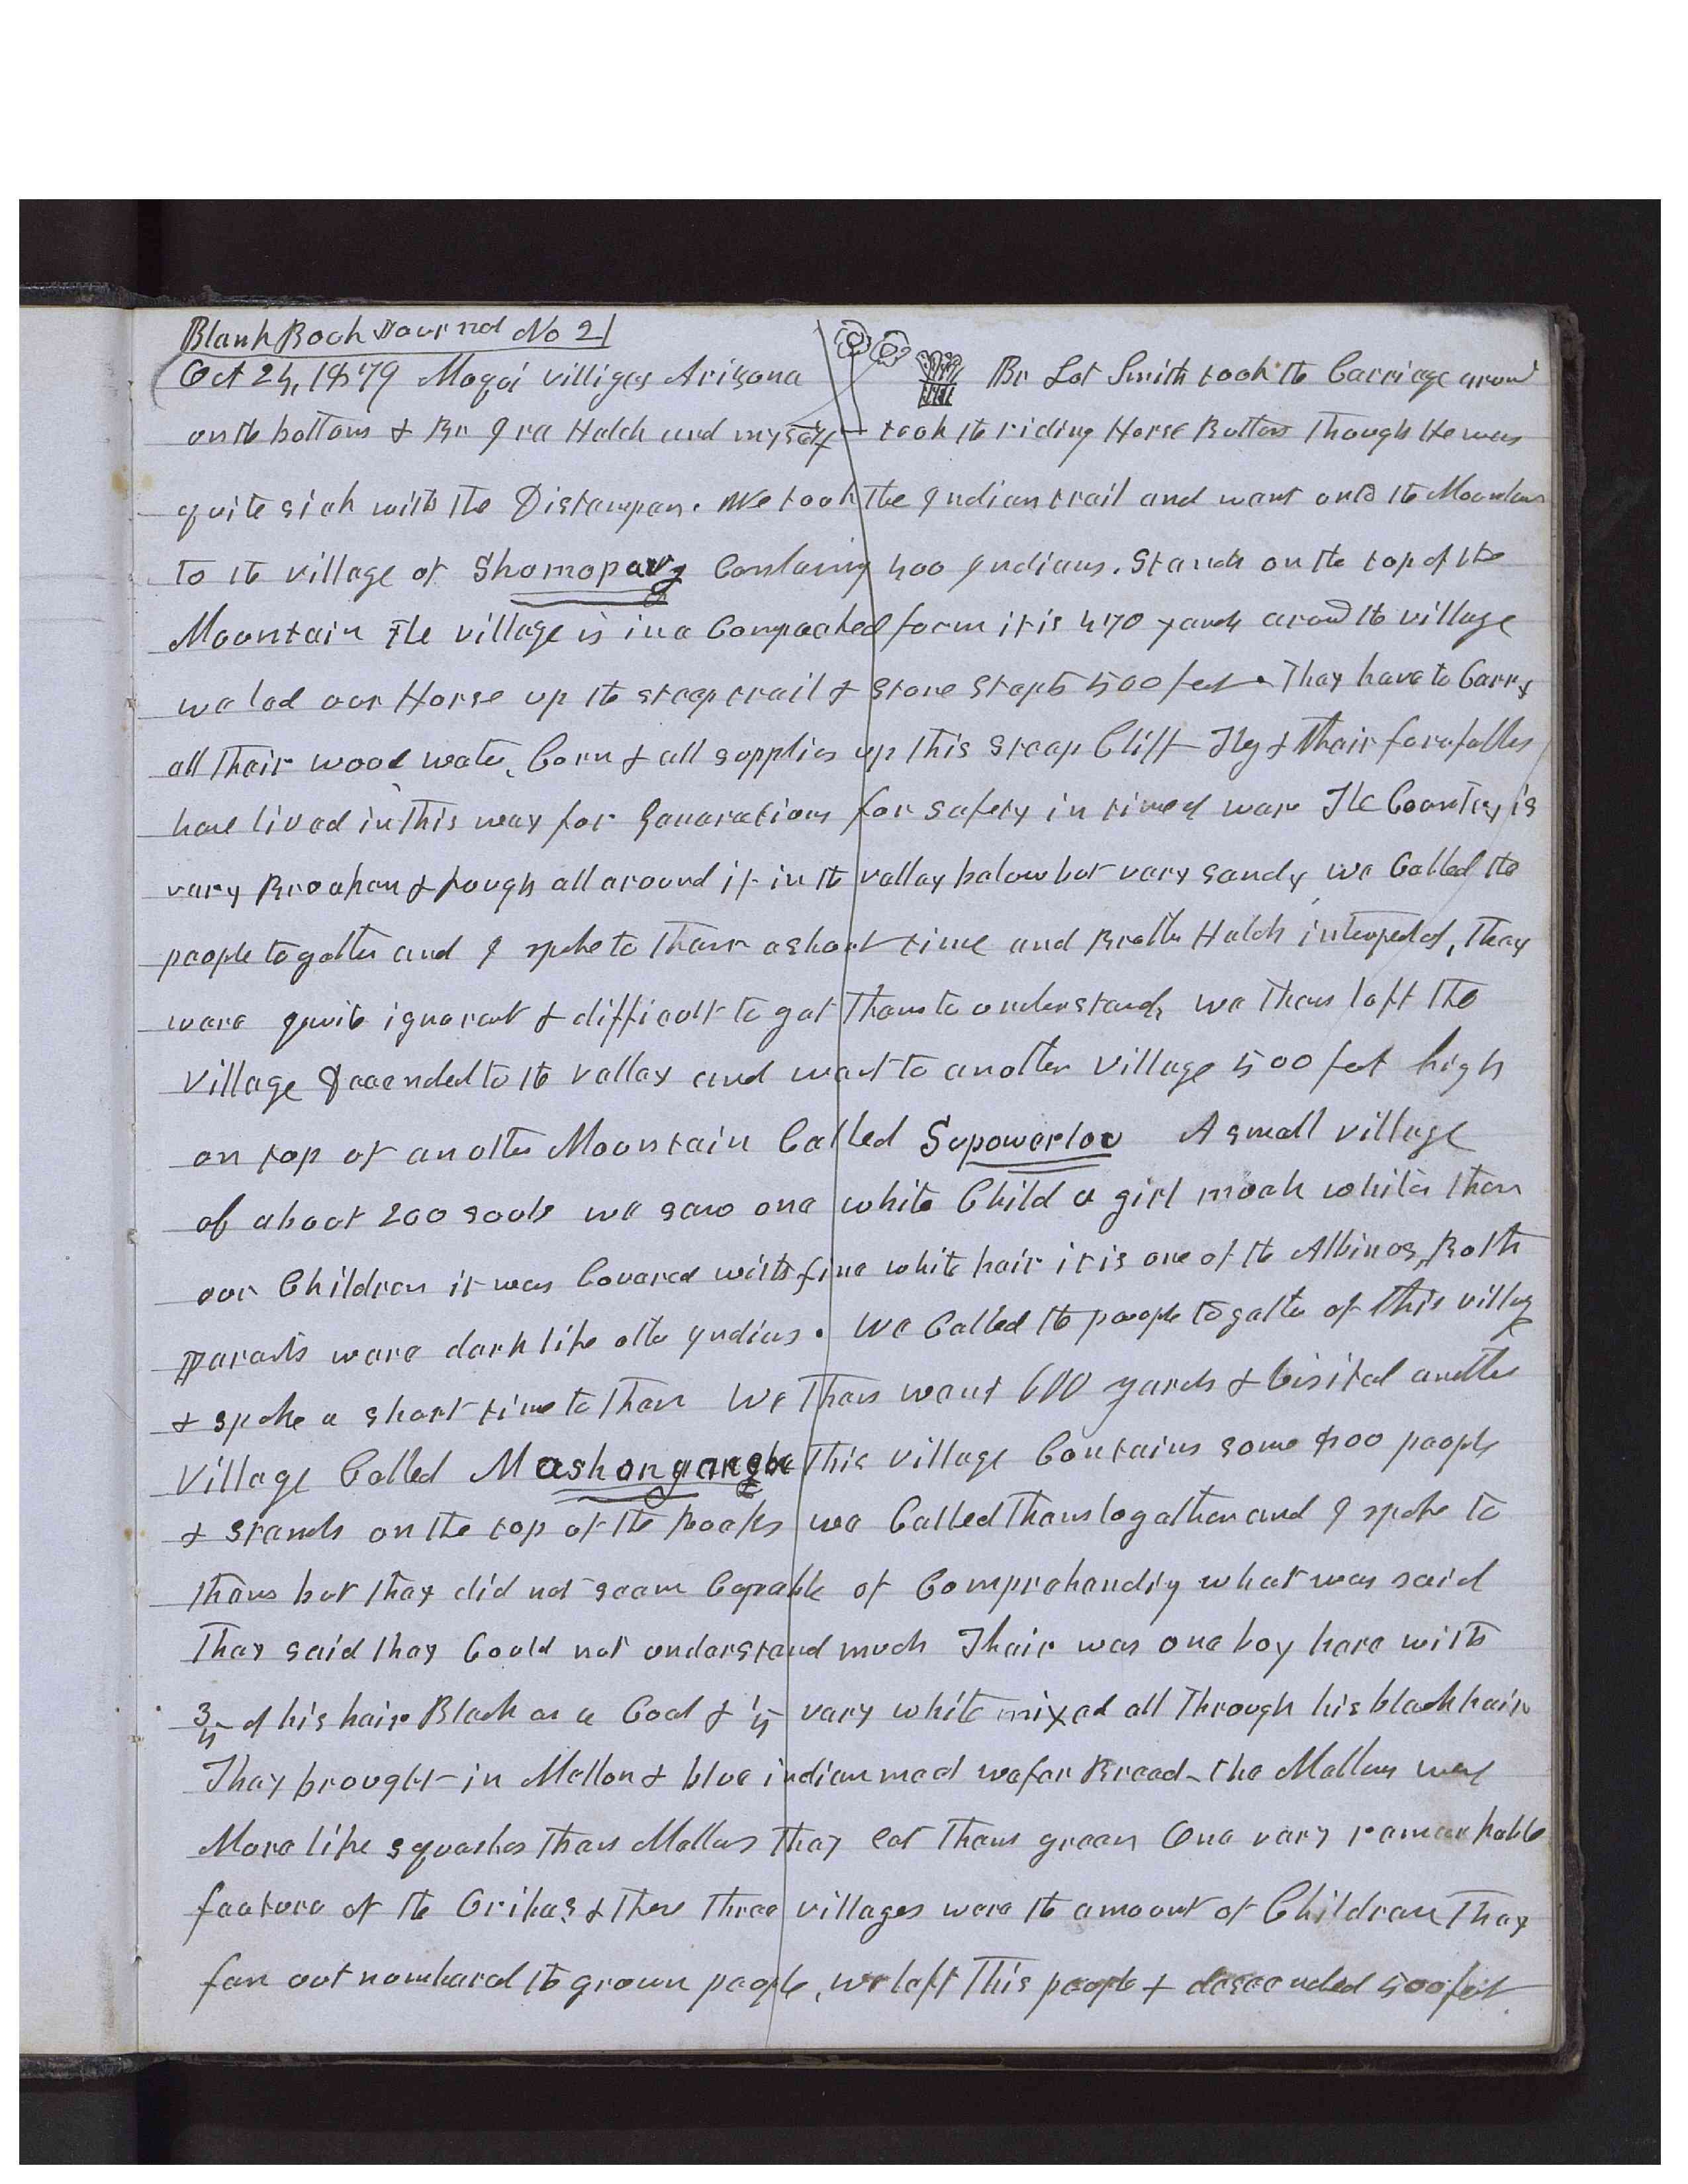 Blank Book Journal No 21
Oct 24, 1879 Moqui villiges Arizona Br Lot Smith took the Carriage arou[n]d
on the bottom & Br Ira Hatch and myself took the riding Horse Button Though He was
quite sick with the Distemper. We took the Indian trail and went onto the Mountain
to the village of Shomopavy Containing 400 Indians. Stands on the top of the
Mountain The village is in a Compacked form it is 470 yards around the village
we led our Horse up the steep trail & stone steps 500 feet. They have to Carry
all their wood water, Corn & all supplies up this steep Cliff They & their forefathers
have lived in this way for Generations for safety in time of war The Country is
very Broaken & Rough all around it in the valley below but very sandy we Called the
people together and I spoke to them a short time and Brother Hatch interpeted, They
were quite ignorant & difficult to get them to understand, we then left the
village Decended to the valley and went to another village 500 feet high
on top of another Mountain Called Supowerlov A small village
of about 200 souls we saw one white Child a girl much whiter than
our Children it was Covered with fine white hair it is one of the Albinos, Both
Parents were dark like other Indians. We Called the people together of this village
& spoke a short time to them We then went 600 yards & visited another
village Called Mashongangba This village Contains some 400 people
& stands on the top of the Rocks we Called them together and I spoke to
them but they did not seem Capable of Comprehending what was said
They said they Could not understand much Their was one boy here with
3/4 of his hair Black as a Coal & 1/4 very white mixed all through his black hair
They brought in Mellon & blue indian meal wafer Bread The Mellons were
More like squashes than Mellons They eat them green One very remarkable
feature of the Oribas & these three villages were the amount of Children They
far out nombered the grown people, we left This people & descended 500 feet